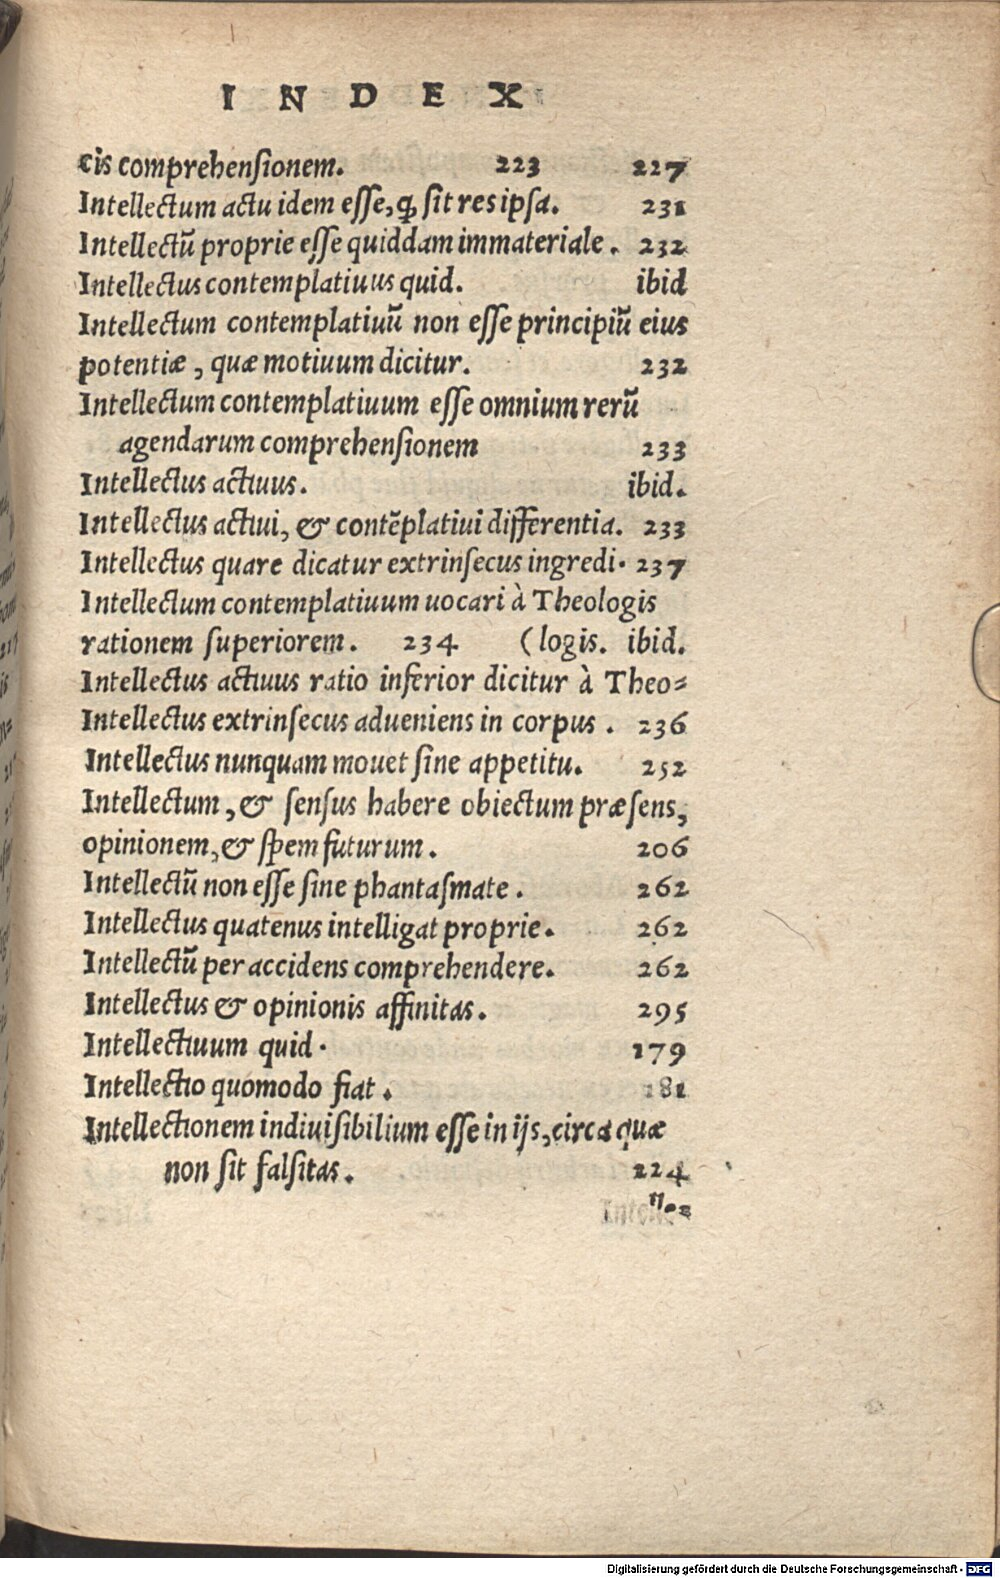 INDEX
cis comprehensionem. 223 227
Intellectum actu idem esse, ꝙ sit res ipsa. 231
Intellectū proprie esse quiddam immateriale. 232
Intellectus contemplatiuus quid. ibid
Intellectum contemplatiuū non esse principiū eius
potentiæ, quæ motiuum dicitur. 232
Intellectum contemplatiuum esse omnium rerū
agendarum comprehensionem 233
Intellectus actiuus. ibid.
Intellectus actiui, & contēplatiui differentia. 233
Intellectus quare dicatur extrinsecus ingredi. 237
Intellectum contemplatiuum uocari à Theologis
rationem superiorem. 234 (logis. ibid.
Intellectus actiuus ratio inferior dicitur à Theo=
Intellectus extrinsecus adueniens in corpus. 236
Intellectus nunquam mouet sine appetitu. 252
Intellectum, & sensus habere obiectum præsens,
opinionem, & spem futurum. 206
Intellectū non esse sine phantasmate. 262
Intellectus quatenus intelligat proprie. 262
Intellectū per accidens comprehendere. 262
Intellectus & opinionis affinitas. 295
Intellectiuum quid. 179
Intellectio quomodo fiat. 181
Intellectionem indiuisibilium esse in ijs, circa quæ
non sit falsitas. 224
Digitalisierung gefördert durch die Deutsche Forschungsgemeinschaft - DFG